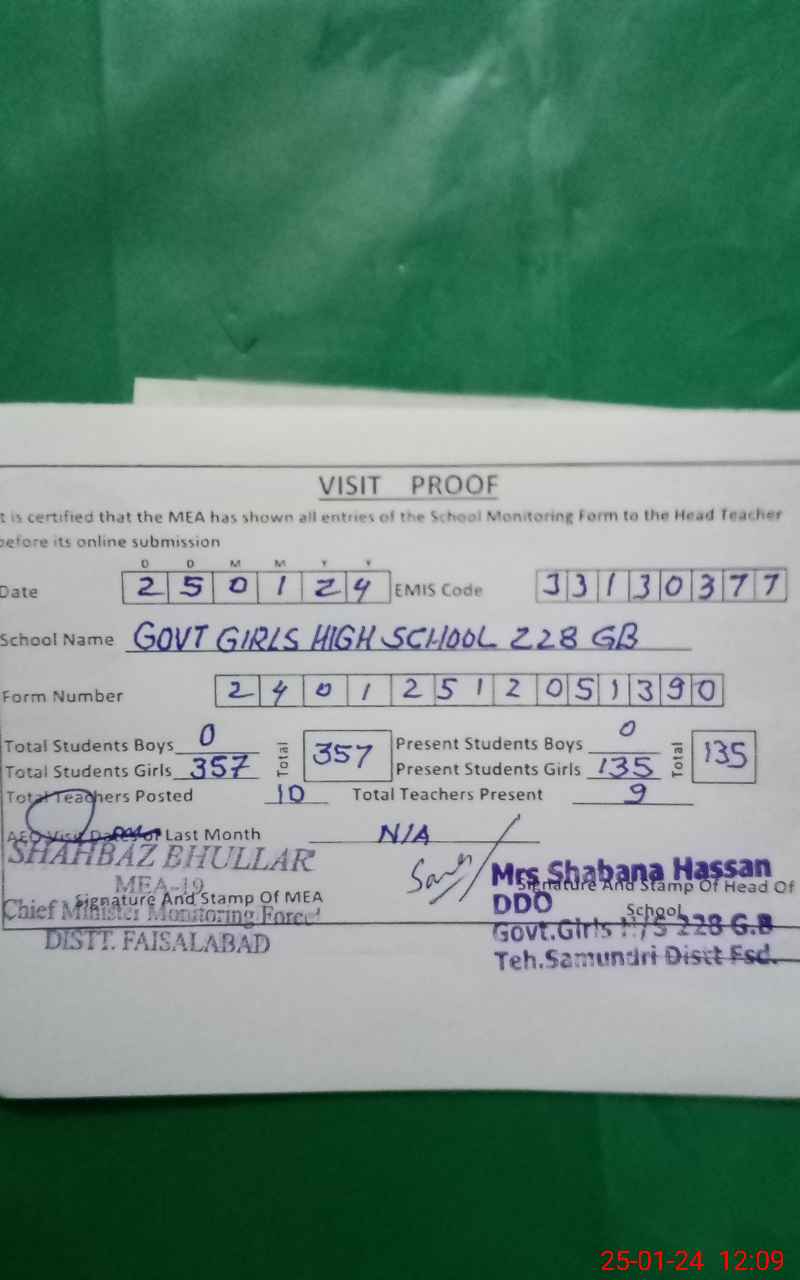 VISIT PROOF
t is certified that the MEA has shown all entries of the School Monitoring Form to the Head Teacher
before its online submission
D D M M Y Y
Date 2 5 0 1 2 4 EMIS Code 3 3 1 3 0 3 7 7
School Name GOVT GIRLS HIGH SCHOOL 228 GB
Form Number 2 4 0 1 2 5 1 2 0 5 1 3 9 0
Total Students Boys 0 Total 357 Present Students Boys 0 Total 135
Total Students Girls 357 Present Students Girls 135
Total Teachers Posted 10 Total Teachers Present 9
AEO Visit Dates of Last Month N/A
SHAHBAZ BHULLAR
MEA-19
Signature And Stamp Of MEA
Chief Minister Monitoring Force
DISTT. FAISALABAD
Mrs Shabana Hassan
Signature And Stamp Of Head Of
DDO School
Govt.Girls H/S 228 G.B
Teh.Samundri Distt Fsd.
25-01-24 12:09